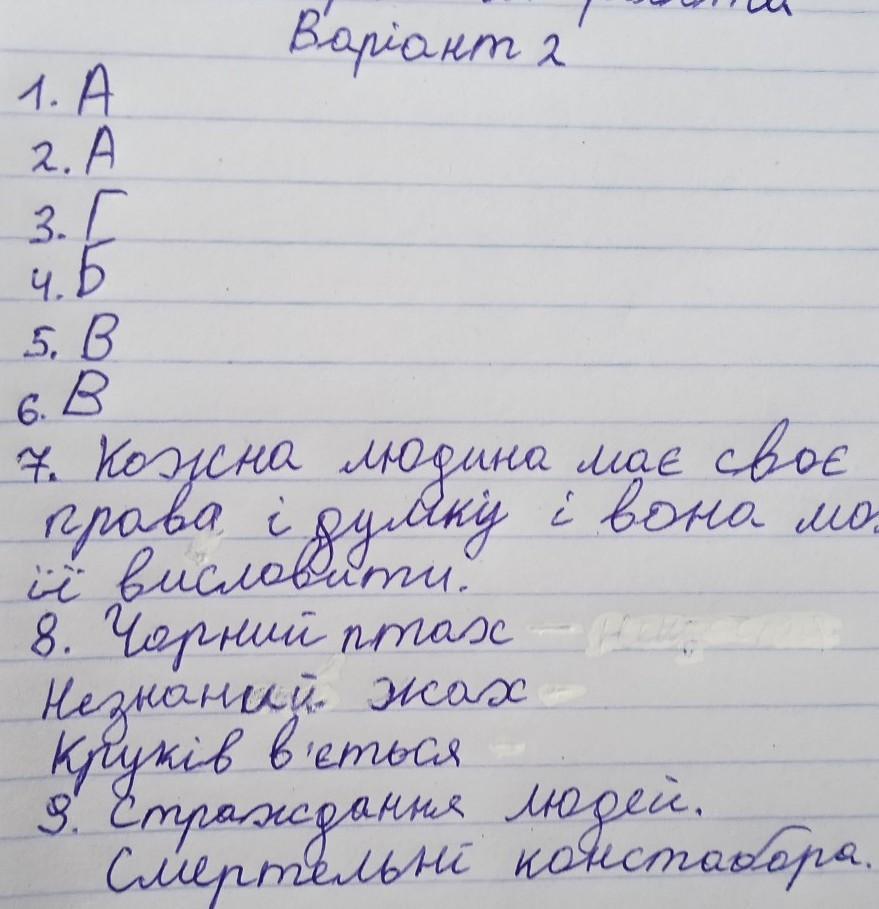 Варіант 2
1. А
2. А
3. Г
4. Б
5. В
6. В
7. Кожна людина має своє
права і думку і вона мо
її висловити.
8. Чорний птах –
Незнаний жах –
Круків в'ється –
9. Страждання людей.
Смертельні констабора.